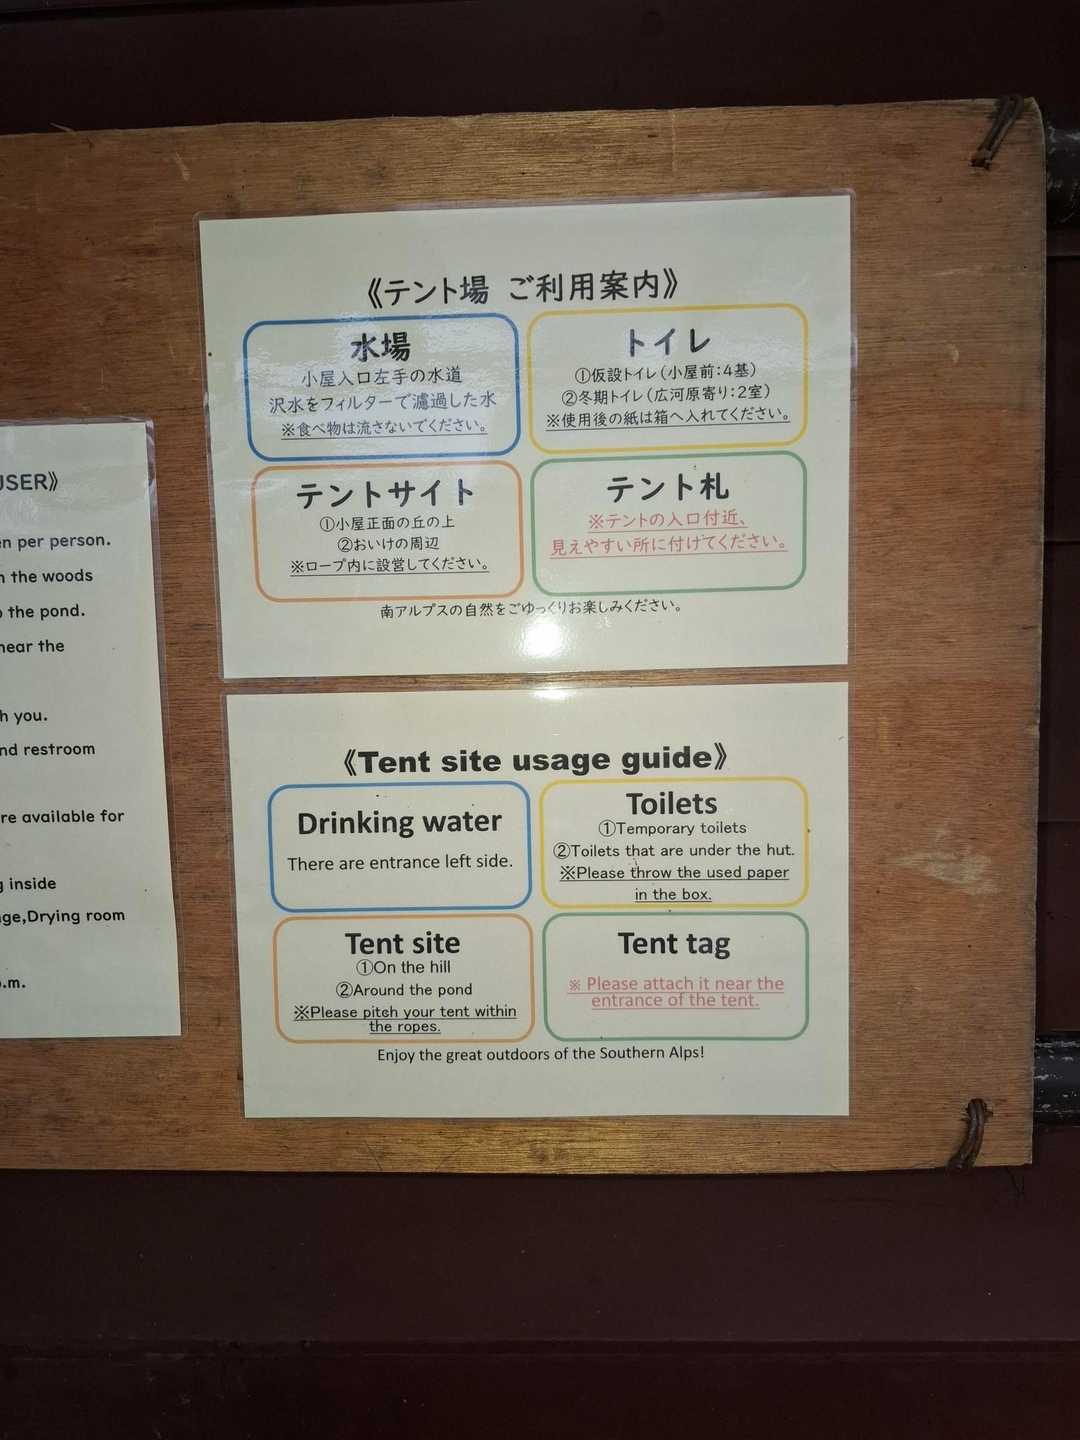 《テント場 ご利用案内》
水場
小屋入口左手の水道
沢水をフィルターで濾過した水
※食べ物は流さないでください。
トイレ
①仮設トイレ(小屋前:4基)
②冬期トイレ(広河原寄り:2室)
※使用後の紙は箱へ入れてください。
テントサイト
①小屋正面の丘の上
②おいけの周辺
※ロープ内に設営してください。
テント札
※テントの入口付近、
見えやすい所に付けてください。
南アルプスの自然をごゆっくりお楽しみください。
《Tent site usage guide》
Drinking water
There are entrance left side.
Toilets
①Temporary toilets
②Toilets that are under the hut.
※Please throw the used paper
in the box.
Tent site
①On the hill
②Around the pond
※Please pitch your tent within
the ropes.
Tent tag
※ Please attach it near the
entrance of the tent.
Enjoy the great outdoors of the Southern Alps!
USER》
en per person.
the woods
the pond.
near the
you.
restroom
re available for
inside
Drying room
p.m.